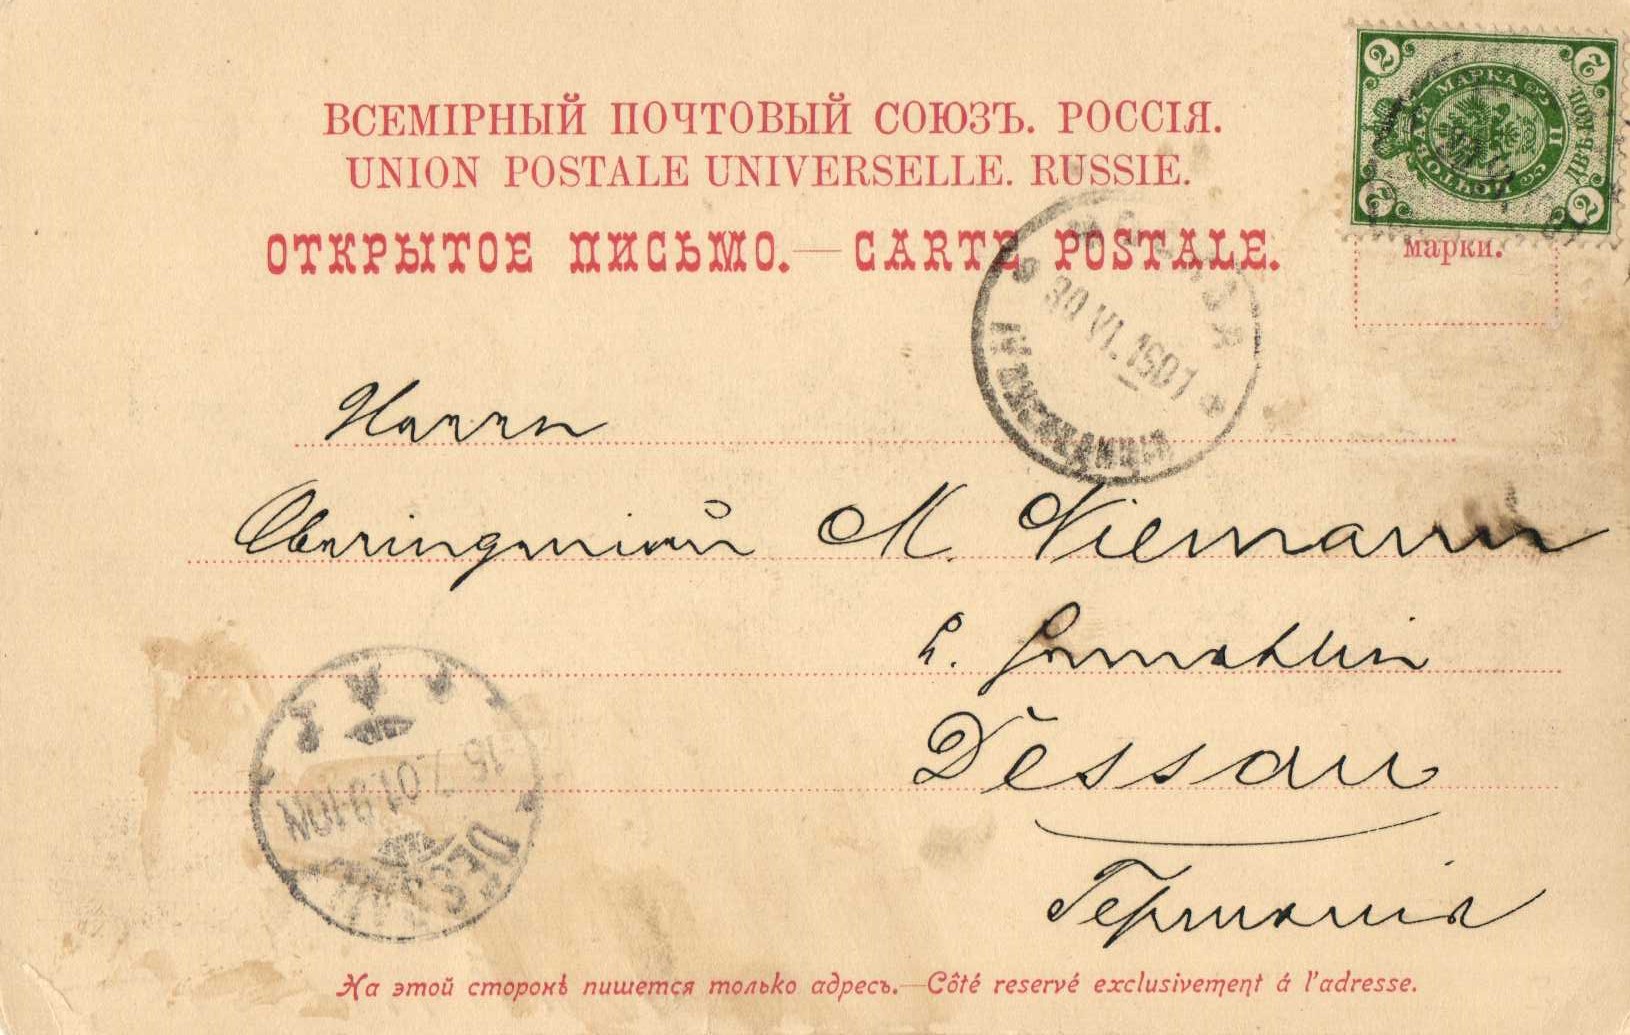 ВСЕМІРНЫЙ ПОЧТОВЫЙ СОЮЗЪ. РОССІЯ.
UNION POSTALE UNIVERSELLE. RUSSIE.
ОТКРЫТОЕ ПИСЬМО. — CARTE POSTALE.
марки.
ПОЧТОВАЯ МАРКА
2 2 2 2
30 VI. 1901
Herrn
Oberingenieur M. Niemann
Dessau
Германія
15 7.01. 9-10N
DESSAU
На этой сторонѣ пишется только адресъ. — Côté reservé exclusivement á l'adresse.